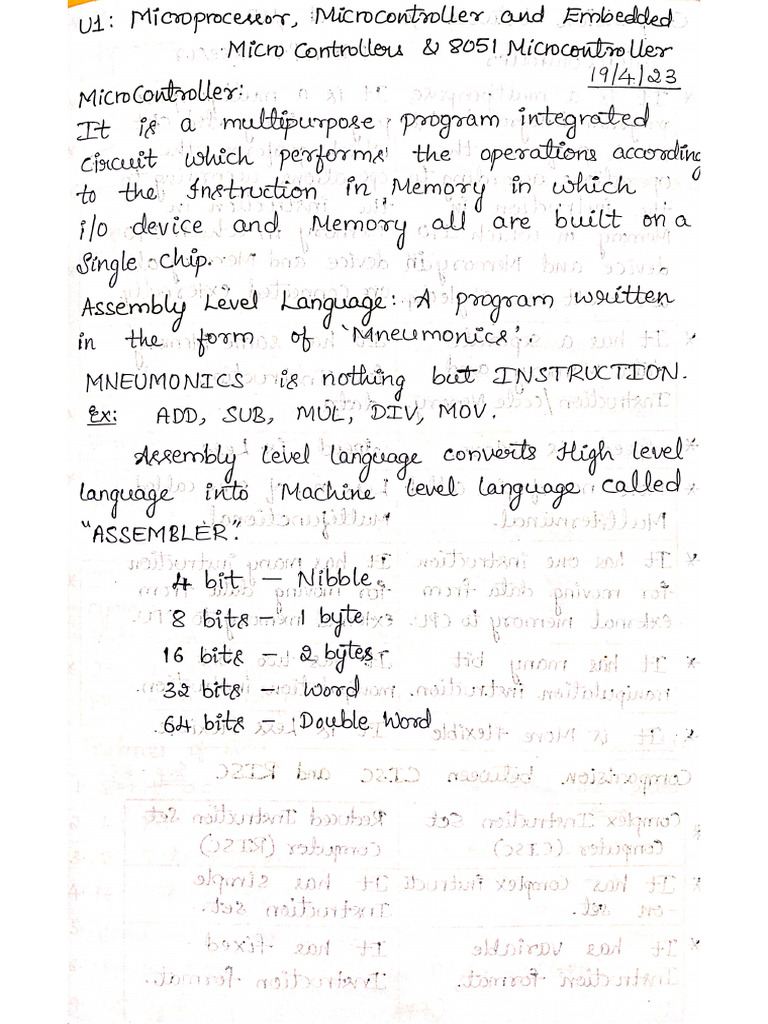 U1: Microprocessor, Microcontroller and Embedded
Micro Controllers & 8051 Microcontroller
19/4/23
MicroController:
It is a multipurpose program integrated
circuit which performs the operations according
to the Instruction in Memory in which
i/o device and Memory all are built on a
Single chip.
Assembly Level Language: A program written
in the form of 'Mneumonics'.
MNEUMONICS is nothing but INSTRUCTION.
Ex: ADD, SUB, MUL, DIV, MOV.
Assembly level language converts High level
language into Machine level language called
"ASSEMBLER".
4 bit – Nibble
8 bits – 1 byte
16 bits – 2 bytes
32 bits – Word
64 bits – Double Word